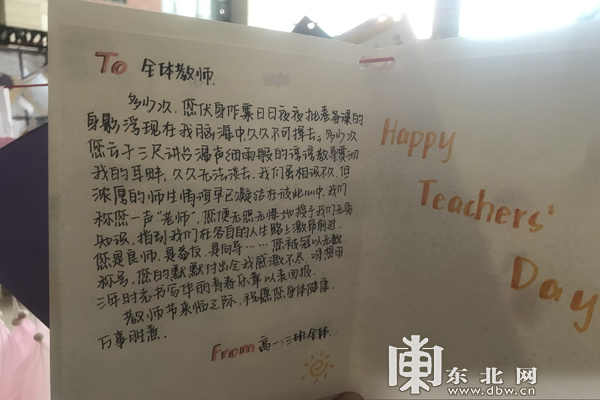 To 全体教师
多少次,您伏身作案日日夜夜批卷备课的
身影浮现在我脑海中久久不可撑去。多少次
您立于三尺讲台温声细雨般的谆谆教导贯彻
我的耳畔,久久无法淡去。我们虽相识不久,但
浓厚的师生情谊早已凝结在彼此心中,我们
称您一声"老师",您便无照无悔地授予我们无穷
知识,指引我们在各自的人生路上激昂前进。
您是良师,是益友,是向导……您被冠以无数
称号,您的默默付出令我感激不尽,愿想用
三年时光书写华丽青春乐章以表回报。
教师节来临之际,祝愿您身体健康,
万事胜意。
From 高一·三班全体
Happy
Teachers'
Day
东北网
www.dbw.cn